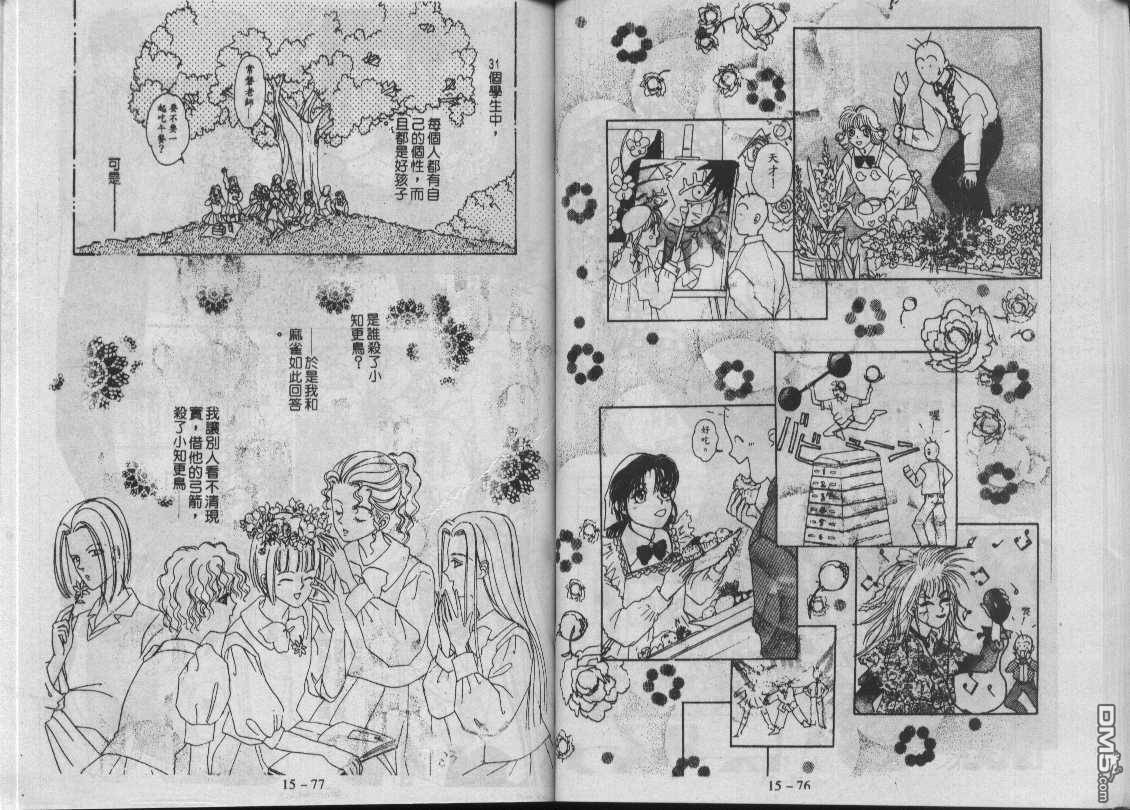 天才！
喔
好吃。
哭
15－76
31個學生中，
每個人都有自
己的個性，而
且都是好孩子
常磐老師！
要不要一
起吃午餐？
可是
是誰殺了小
知更鳥？
——於是我和
麻雀如此回答
。
我讓別人看不清現
實，借他的弓箭，
殺了小知更鳥——
15－77
DM5.com